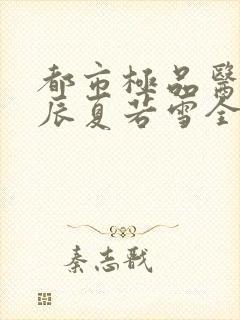 都市極品醫
辰夏若雪全
秦志戬